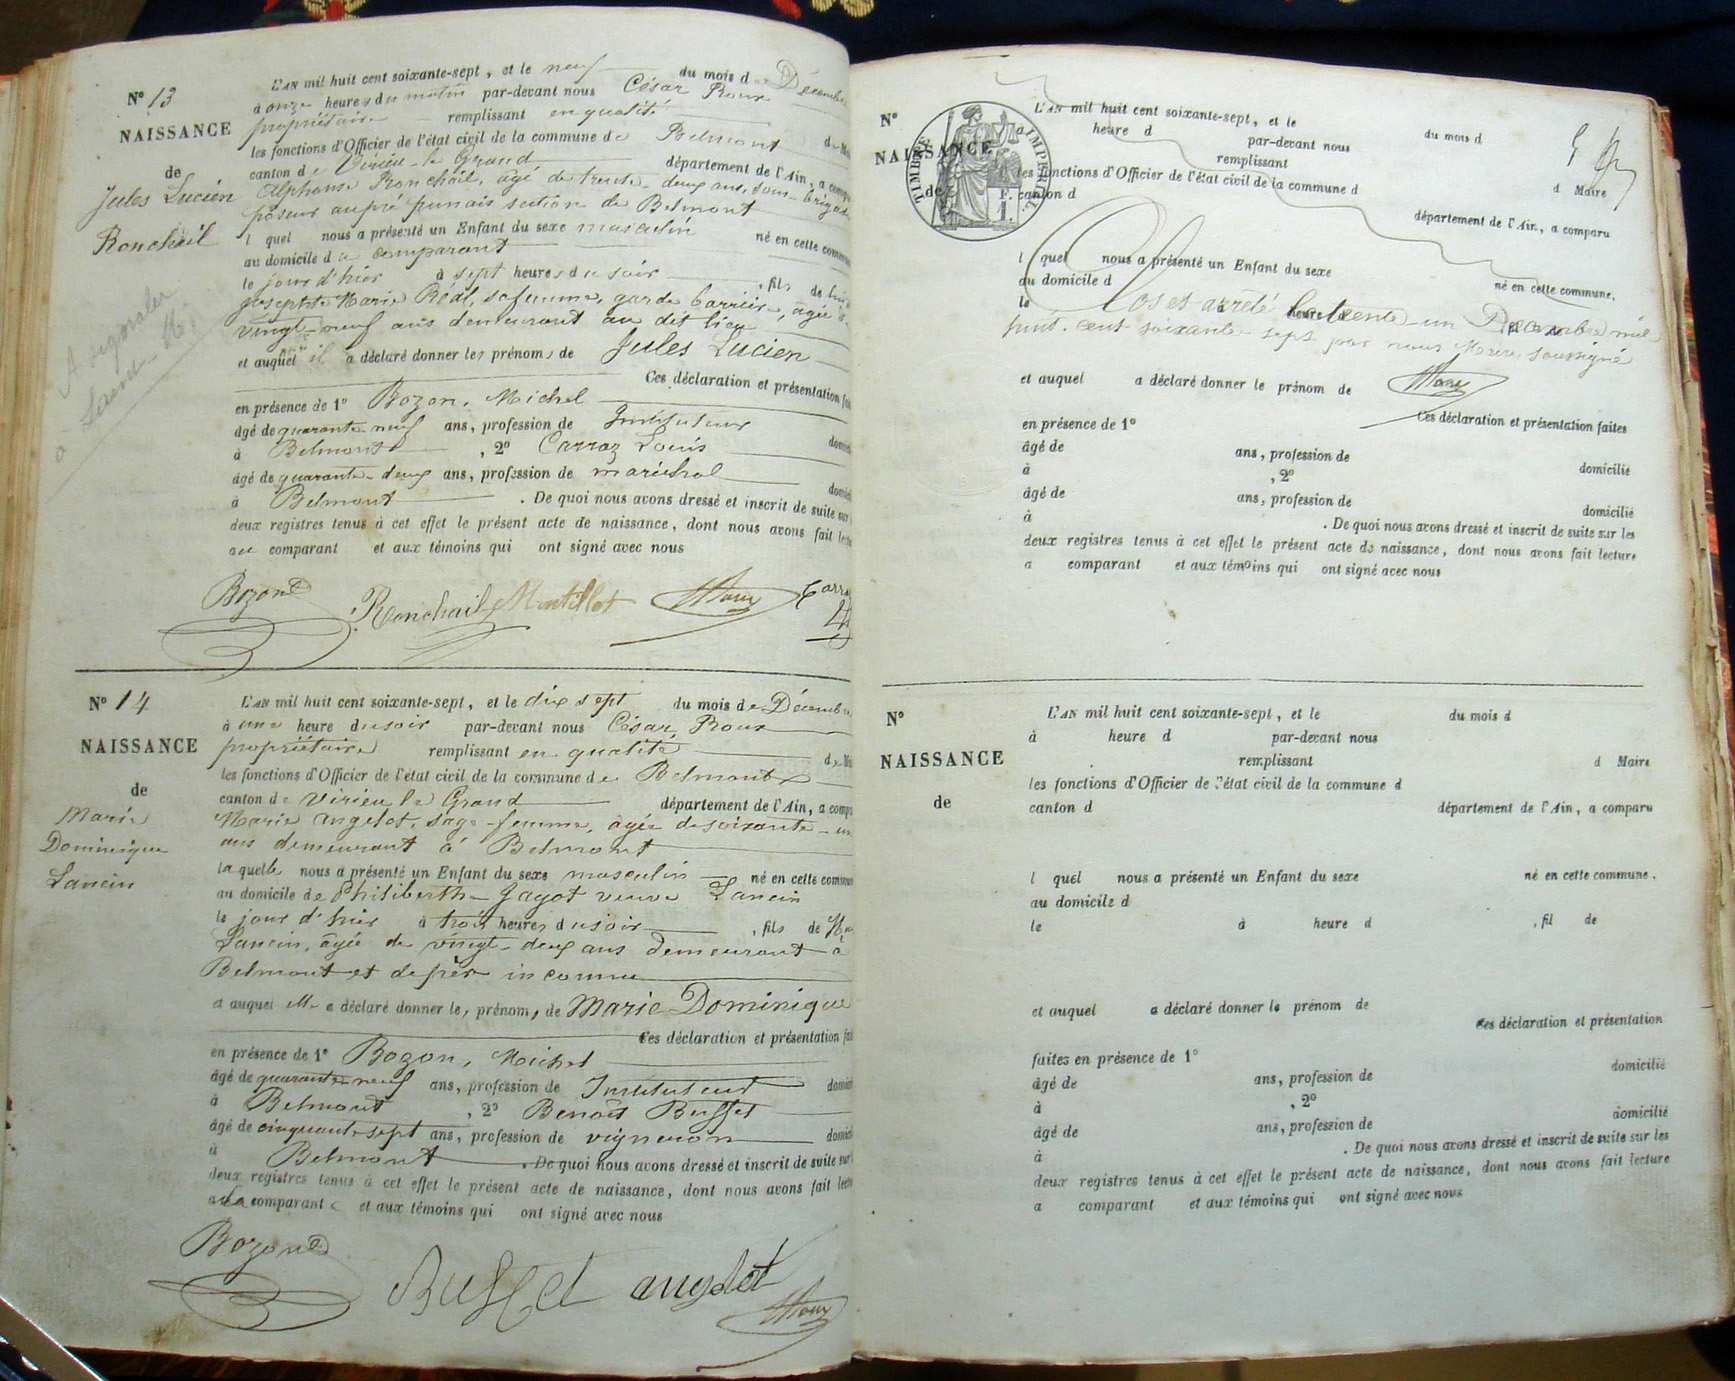 N° 13
NAISSANCE
de
Jules Lucien
Ronchail
A signaler
à
L'AN mil huit cent soixante-sept, et le neuf du mois de Décembre
à onze heures du matin par-devant nous César Roux
propriétaire remplissant en qualité
les fonctions d'Officier de l'état civil de la commune de Belmont
canton de Virieu-le Grand département de l'Ain, a comparu
Alphonse Ronchail, âgé de trente-deux ans, sous-brigadier
poseur au pré punais section de Belmont
l quel nous a présenté un Enfant du sexe masculin né en cette commune
au domicile du comparant
le jour d'hier à sept heures du soir, fils de lui
Josephte Marie Réal, sa femme, garde barrière, âgée de
vingt-neuf ans demeurant au dit lieu
et auquel il a déclaré donner les prénoms de Jules Lucien
Ces déclaration et présentation
en présence de 1° Bozon, Michel
âgé de quarante neuf ans, profession de Instituteur
à Belmont, 2° Carraz Louis
âgé de quarante-deux ans, profession de maréchal
à Belmont. De quoi nous avons dressé et inscrit de suite sur
deux registres tenus à cet effet le présent acte de naissance, dont nous avons fait
au comparant et aux témoins qui ont signé avec nous
Bozon Ronchail Montillet Roux Carraz
N° 14
NAISSANCE
de
Marie
Dominique
Lancin
L'AN mil huit cent soixante-sept, et le dix sept du mois de Décembre
à une heure du soir par-devant nous César Roux
propriétaire remplissant en qualité
les fonctions d'Officier de l'état civil de la commune de Belmont
canton de Virieu le Grand département de l'Ain, a comparu
Marie Angelot, sage-femme, âgée de soixante-un
ans demeurant à Belmont
laquelle nous a présenté un Enfant du sexe masculin né en cette commune
au domicile de Philiberthe Gagot veuve Lancin
le jour d'hier à trois heures du soir, fils de
Lancin, âgée de vingt-deux ans demeurant à
Belmont et de père inconnu
et auquel elle a déclaré donner les prénoms de Marie Dominique
Ces déclaration et présentation
en présence de 1° Bozon, Michel
âgé de quarante-neuf ans, profession de Instituteur
à Belmont, 2° Benoît Buffet
âgé de cinquante-sept ans, profession de vigneron
à Belmont. De quoi nous avons dressé et inscrit de suite sur
deux registres tenus à cet effet le présent acte de naissance, dont nous avons fait
à la comparante et aux témoins qui ont signé avec nous
Bozon Buffet angelot Roux
N°
NAISSANCE
de
TIMBRE IMPERIAL
1 F.
L'AN mil huit cent soixante-sept, et le du mois d
heure d par-devant nous
remplissant d Maire
les fonctions d'Officier de l'état civil de la commune d
canton d département de l'Ain, a comparu
l quel nous a présenté un Enfant du sexe né en cette commune,
au domicile d
le heure d
Clos et arrêté le trente-un Décembre mil
huit-cent soixante-sept par nous Maire soussigné
Roux
et auquel a déclaré donner le prénom de
Ces déclaration et présentation faites
en présence de 1°
âgé de ans, profession de domicilié
à , 2°
âgé de ans, profession de domicilié
à . De quoi nous avons dressé et inscrit de suite sur les
deux registres tenus à cet effet le présent acte de naissance, dont nous avons fait lecture
a comparant et aux témoins qui ont signé avec nous
N°
NAISSANCE
de
L'AN mil huit cent soixante-sept, et le du mois d
à heure d par-devant nous
remplissant d Maire
les fonctions d'Officier de l'état civil de la commune d
canton d département de l'Ain, a comparu
l quel nous a présenté un Enfant du sexe né en cette commune.
au domicile d
le à heure d , fil de
et auquel a déclaré donner le prénom de
Ces déclaration et présentation
faites en présence de 1°
âgé de ans, profession de domicilié
à , 2°
âgé de ans, profession de domicilié
à . De quoi nous avons dressé et inscrit de suite sur les
deux registres tenus à cet effet le présent acte de naissance, dont nous avons fait lecture
a comparant et aux témoins qui ont signé avec nous